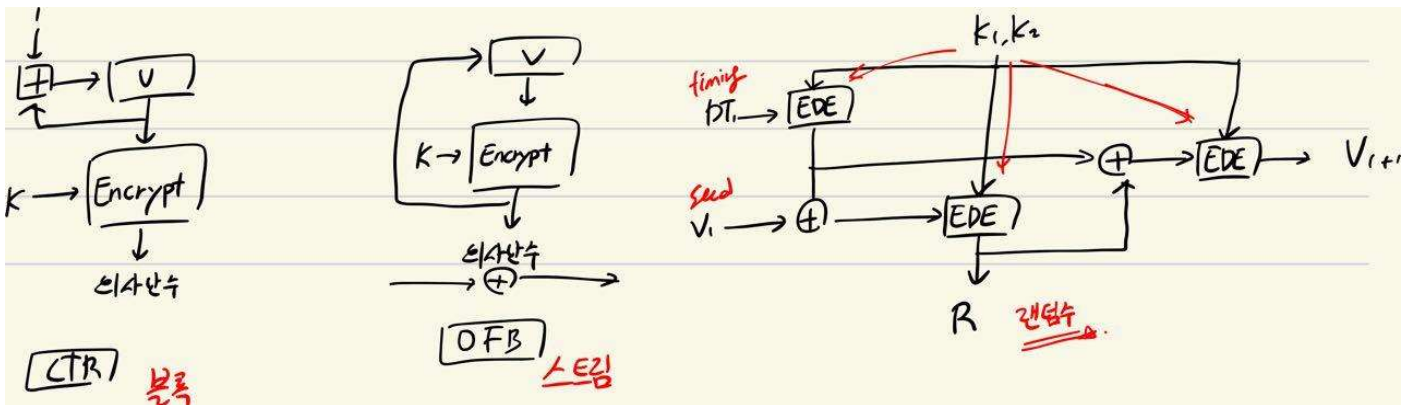 1
+ V
K Encrypt
의사난수
CTR 블록
V
K Encrypt
의사난수
+
OFB 스트림
K₁, K₂
timing
DTᵢ EDE
+ EDE Vᵢ₊₁
seed
Vᵢ + EDE
R 랜덤수